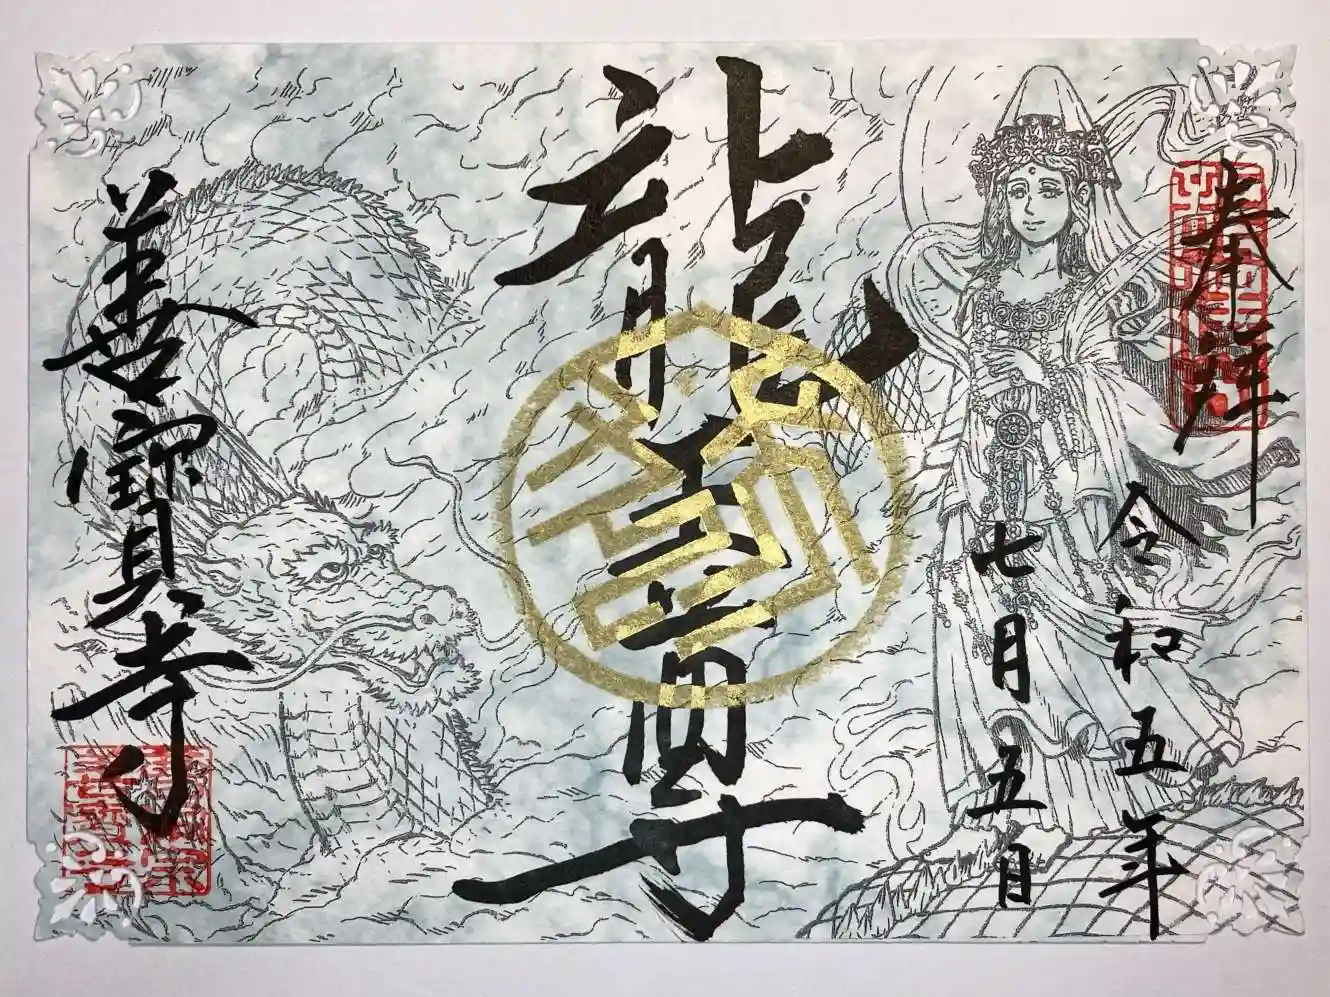 奉拝
令和五年
七月五日
龍王尊
善寳寺